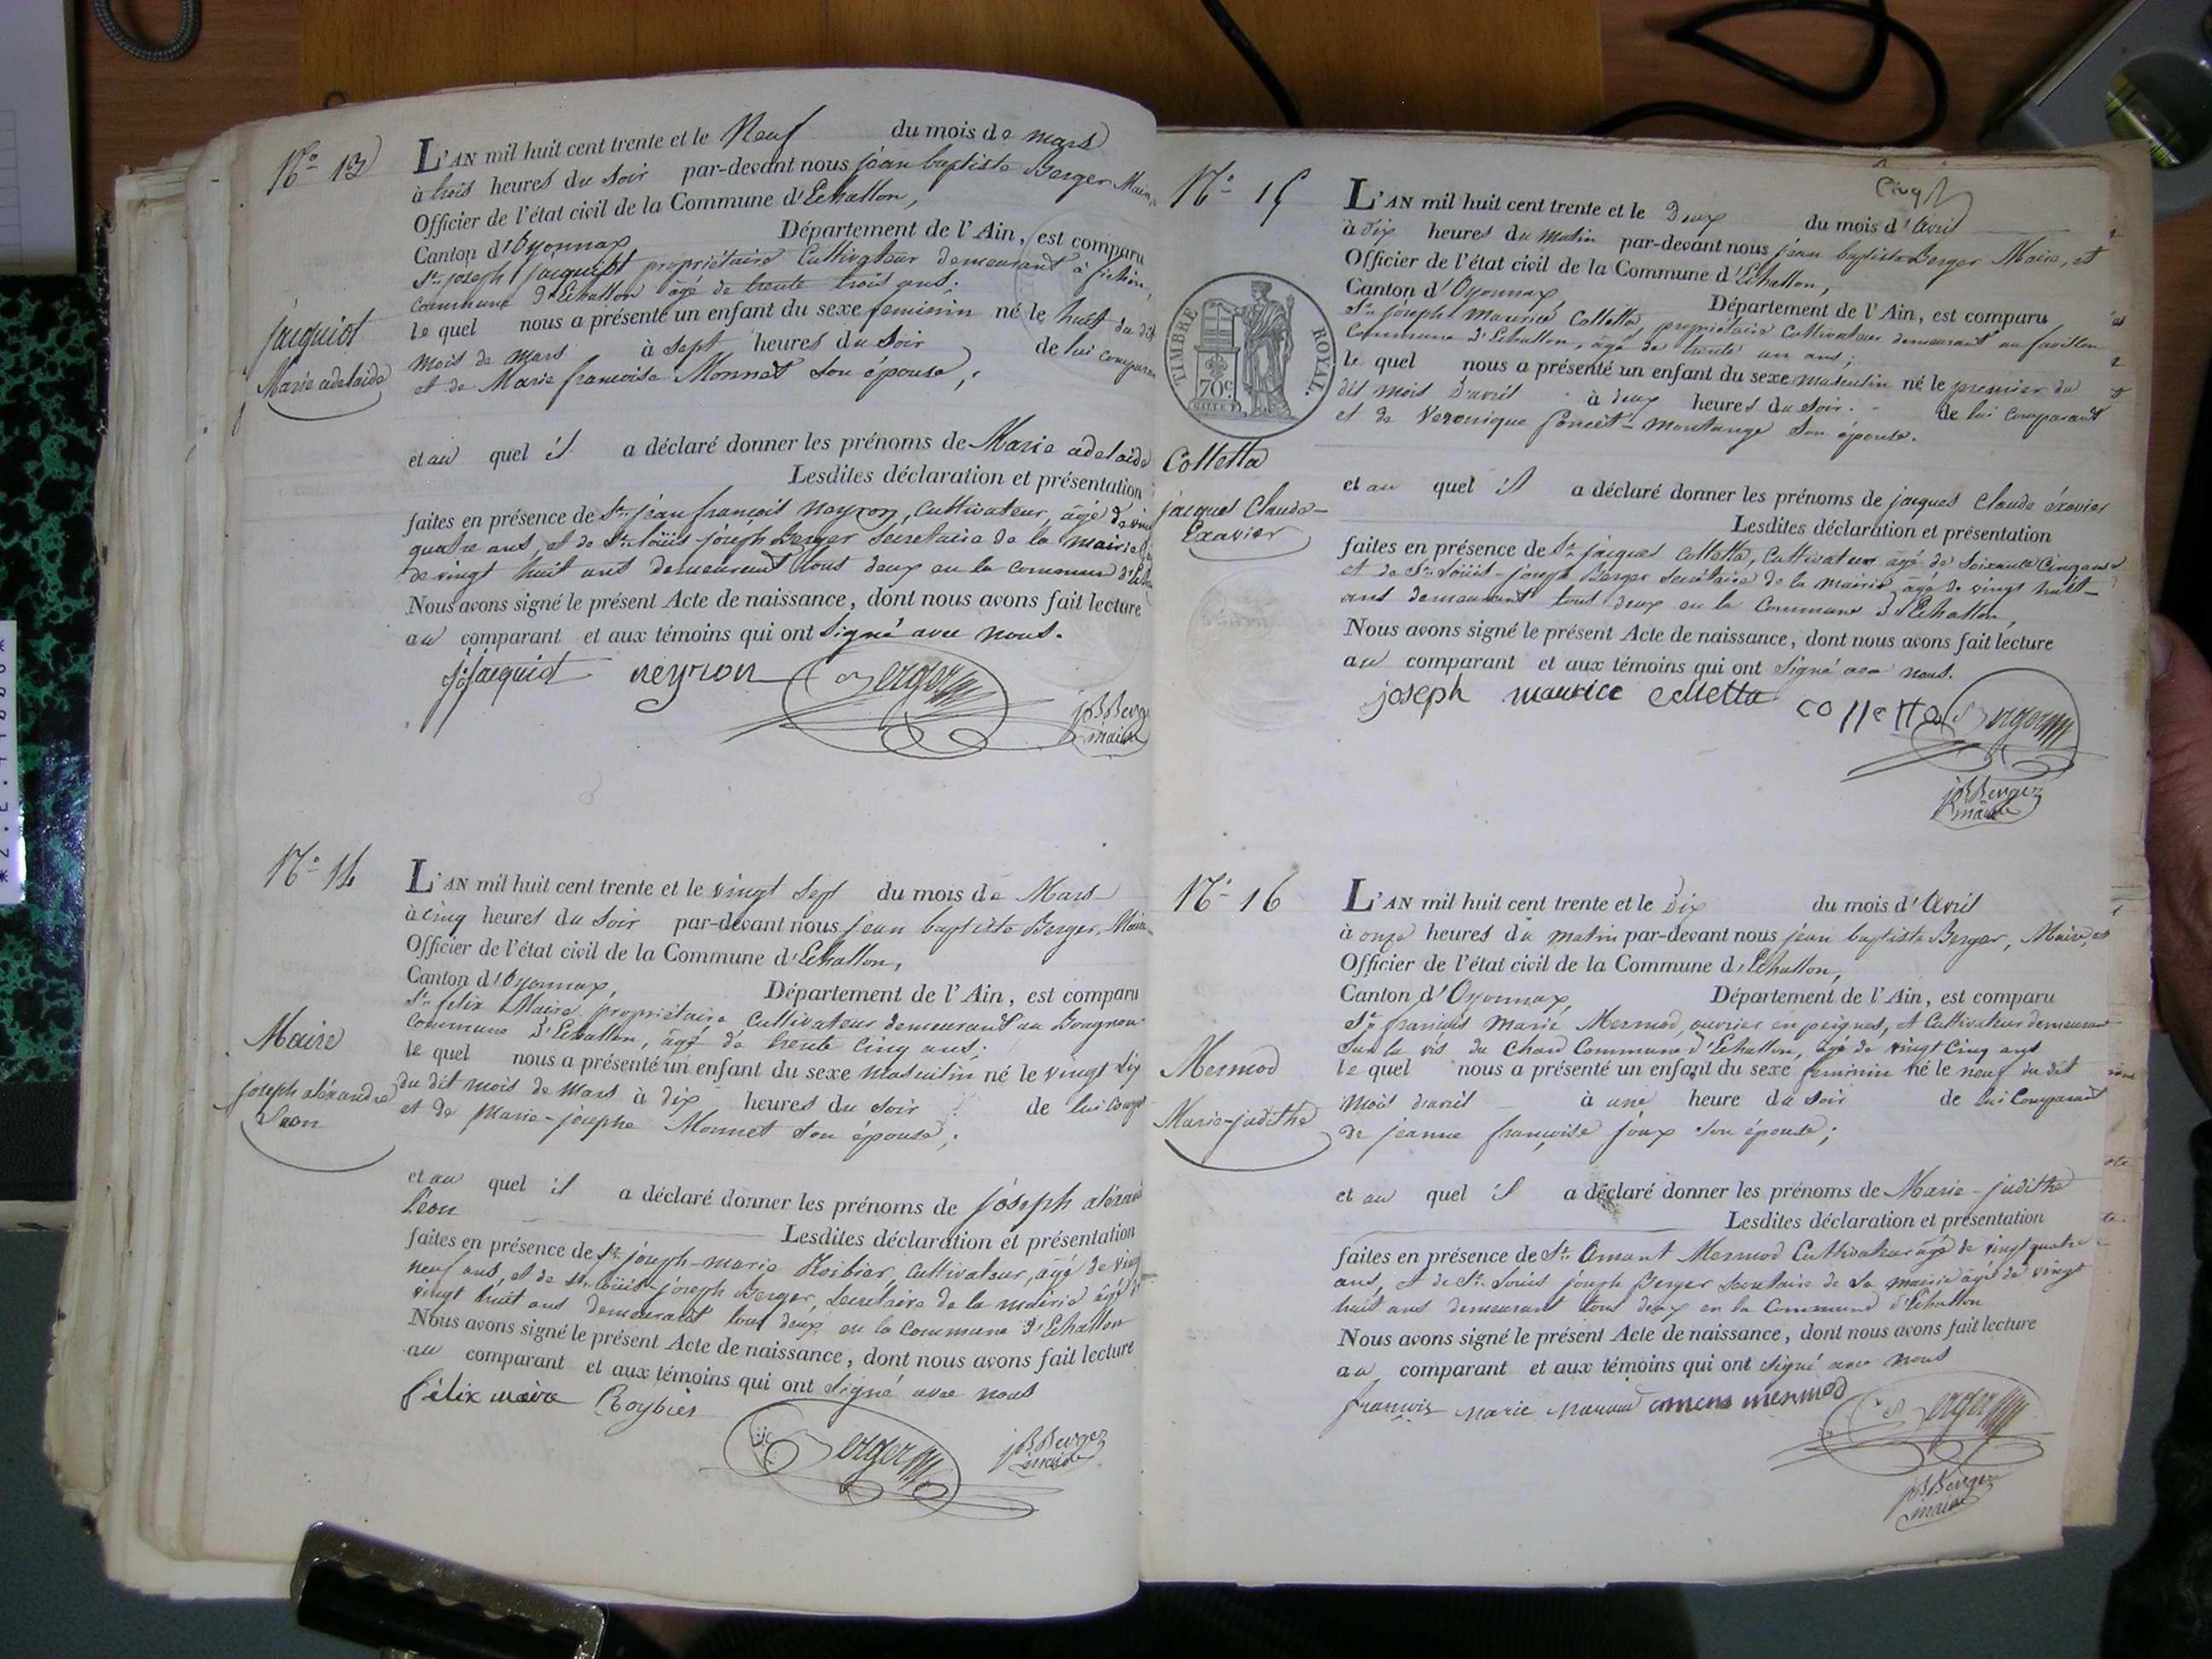 N.o 13
L'AN mil huit cent trente et le Neuf du mois de mars
à trois heures du soir par-devant nous jean baptiste Berger Maire
Officier de l'état civil de la Commune d'Echallon,
Canton d'Oyonnax Département de l'Ain, est comparu
Sr. joseph jacquiot propriétaire Cultivateur demeurant à
commune d'Echallon âgé de trente trois ans.
jacquiot
Marie adelaide
le quel nous a présenté un enfant du sexe feminin né le huit du dit
mois de mars à sept heures du soir de lui compara
et de Marie francoise Monnet son épouse;
et au quel il a déclaré donner les prénoms de Marie adelaide
Lesdites déclaration et présentation
faites en présence de Sr. jean françois Neyron, Cultivateur, âgé de
quatre ans, et de Sr. Loüis-joseph Berger Secretaire de la mairie
de vingt huit ans demeurant tous deux en la commune d'Echa
Nous avons signé le présent Acte de naissance, dont nous avons fait lecture
au comparant et aux témoins qui ont signé avec nous.
jh jacquiot neyron Berger
jB Berger
maire
N.o 14
L'AN mil huit cent trente et le vingt sept du mois de Mars
à cinq heures du soir par-devant nous jean baptiste Berger, Maire
Officier de l'état civil de la Commune d'Echallon,
Canton d'Oyonnax, Département de l'Ain, est comparu
Sr. felix Maire propriétaire Cultivateur demeurant au
commune d'Echallon, âgé de trente cinq ans;
Maire
joseph aléxandre
Léon
le quel nous a présenté un enfant du sexe masculin né le vingt six
du dit mois de Mars à dix heures du soir de lui comp
et de Marie-josephe Monnet son épouse;
et au quel il a déclaré donner les prénoms de joseph aléxan
Léon
Lesdites déclaration et présentation
faites en présence de Sr. joseph-marie Roibier, Cultivateur, âgé de ving
neuf ans, et de Sr. Loüis-joseph Berger, Secrétaire de la mairie âgé
vingt huit ans demeurant tous deux en la commune d'Echallon
Nous avons signé le présent Acte de naissance, dont nous avons fait lecture
au comparant et aux témoins qui ont signé avec nous
félix maire Roybier
Berger
jB Berger
maire
cinq
N.o 15
L'AN mil huit cent trente et le Deux du mois d'avril
à dix heures du matin par-devant nous jean baptiste Berger Maire, et
Officier de l'état civil de la Commune d'Echallon,
Canton d'Oyonnax, Département de l'Ain, est comparu
Sr. joseph Maurice Colletta, propriétaire Cultivateur demeurant au favillon
commune d'Echallon, âgé de trente un ans;
TIMBRE ROYAL.
70c.
Colletta
jacques Claude-
Exavier
le quel nous a présenté un enfant du sexe masculin né le premier du
dit mois d'avril à deux heures du soir. de lui comparant
et de Veronique poncet-montange son épouse.
et au quel il a déclaré donner les prénoms de jacques Claude éxavier
Lesdites déclaration et présentation
faites en présence de Sr. jacques Colletta, Cultivateur agé de Soixante Cinq ans
et de Sr. Loüis-joseph Berger Secrétaire de la mairie âgé de vingt huit
ans demeurant tous deux en la Commune d'Echallon,
Nous avons signé le présent Acte de naissance, dont nous avons fait lecture
au comparant et aux témoins qui ont signé avec nous.
joseph maurice colletta colletta Berger
jB Berger
maire
N.o 16
L'AN mil huit cent trente et le Dix du mois d'avril
à onze heures du matin par-devant nous jean baptiste Berger, Maire, et
Officier de l'état civil de la Commune d'Echallon,
Canton d'Oyonnax, Département de l'Ain, est comparu
Sr. francois Marie Mermod, ouvrier en peignes, et Cultivateur demeurant
Sur la vis du Chau Commune d'Echallon, âgé de vingt Cinq ans
Mermod
Marie-judithe
le quel nous a présenté un enfant du sexe feminin né le neuf du dit
mois d'avril à une heure du soir de lui Comparant
de jeanne françoise joux son épouse;
et au quel il a déclaré donner les prénoms de Marie-judithe
Lesdites déclaration et présentation
faites en présence de Sr. Amant Mermod Cultivateur âgé de vingt quatre
ans, et de Sr. Louis joseph Berger Secretaire de La mairie âgé de vingt
huit ans demeurant tous deux en la Commune d'Echallon
Nous avons signé le présent Acte de naissance, dont nous avons fait lecture
au comparant et aux témoins qui ont signé avec nous
francois marie mermod amens mermod Berger
jB Berger
maire